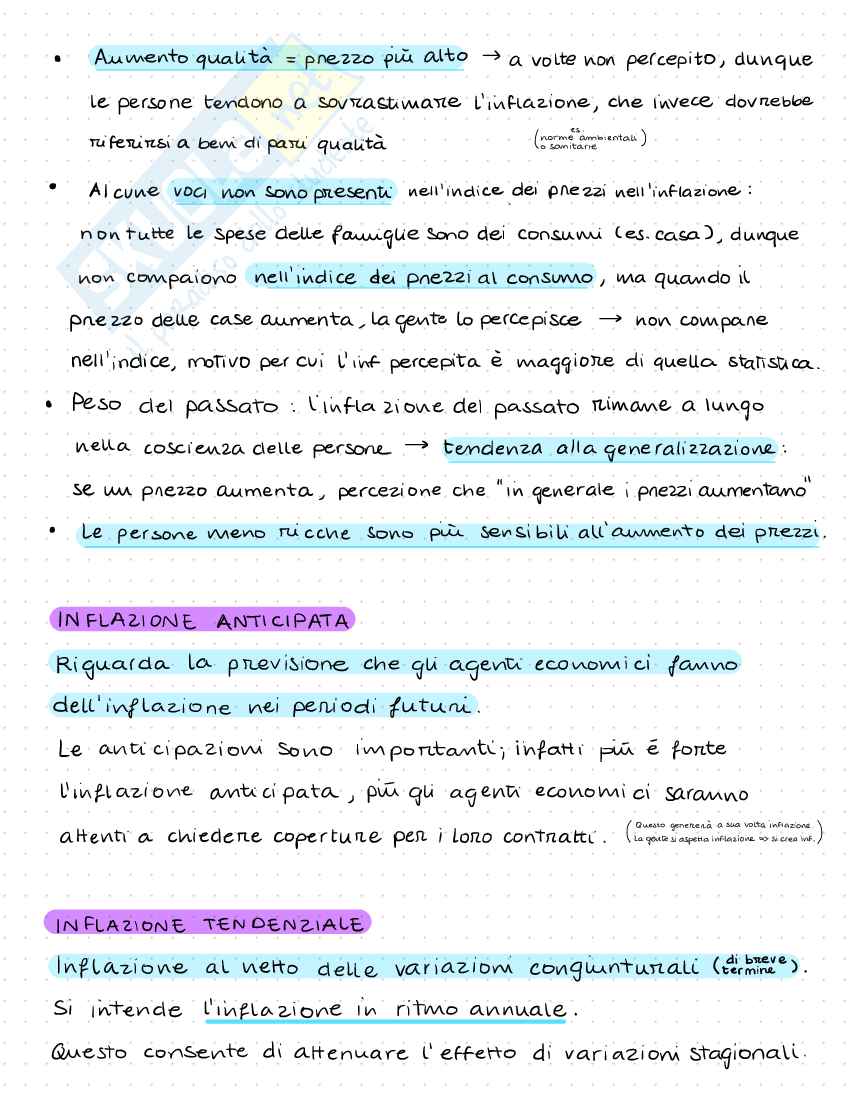 • Aumento qualità = prezzo più alto → a volte non percepito, dunque
le persone tendono a sovrastimare l'inflazione, che invece dovrebbe
riferirsi a beni di pari qualità (es. norme ambientali o sanitarie)
• Alcune voci non sono presenti nell'indice dei prezzi nell'inflazione :
non tutte le spese delle famiglie sono dei consumi (es. casa), dunque
non compaiono nell'indice dei prezzi al consumo, ma quando il
prezzo delle case aumenta, la gente lo percepisce → non compare
nell'indice, motivo per cui l'inf percepita è maggiore di quella statistica.
• Peso del passato : l'inflazione del passato rimane a lungo
nella coscienza delle persone → tendenza alla generalizzazione :
se un prezzo aumenta, percezione che "in generale i prezzi aumentano"
• Le persone meno ricche sono più sensibili all'aumento dei prezzi.
INFLAZIONE ANTICIPATA
Riguarda la previsione che gli agenti economici fanno
dell'inflazione nei periodi futuri.
Le anticipazioni sono importanti; infatti più é forte
l'inflazione anticipata, più gli agenti economici saranno
attenti a chiedere coperture per i loro contratti. (Questo genererà a sua volta inflazione
La gente si aspetta inflazione => si crea inf.)
INFLAZIONE TENDENZIALE
Inflazione al netto delle variazioni congiunturali (di breve termine).
Si intende l'inflazione in ritmo annuale.
Questo consente di attenuare l'effetto di variazioni stagionali.